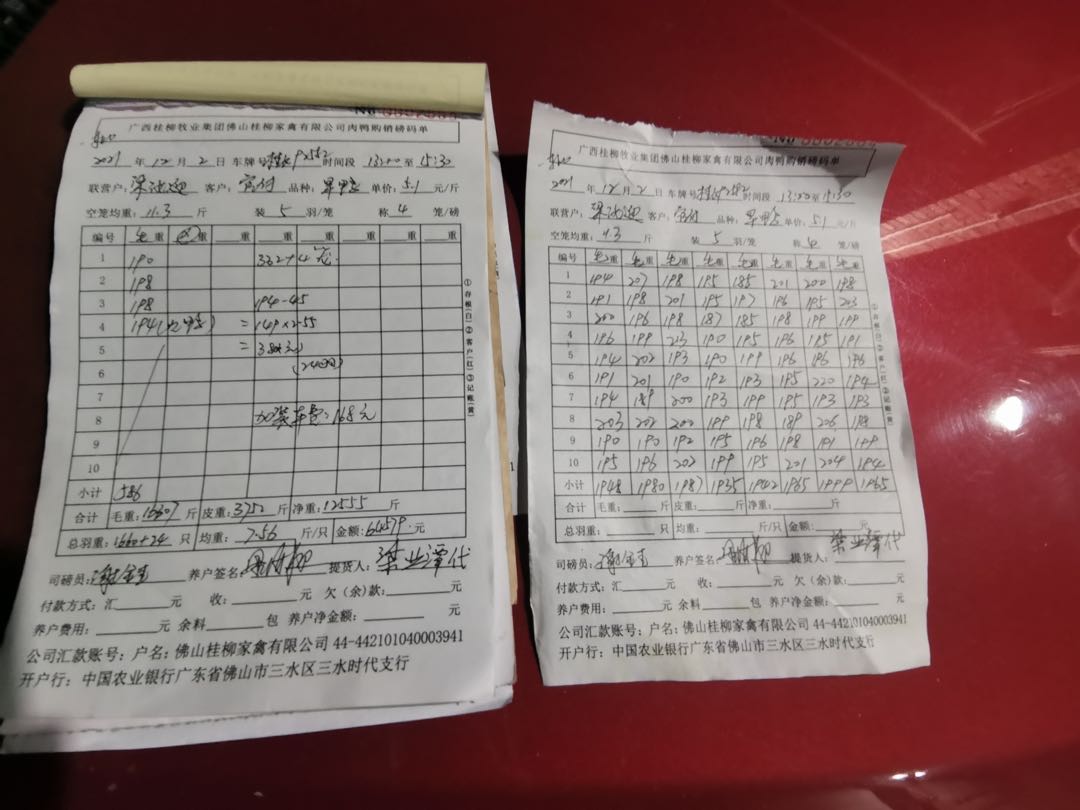 广西桂柳牧业集团佛山桂柳家禽有限公司肉鸭购销磅码单
2021 年 12 月 2 日 车牌号 时间段 13:00 至 15:30
联营户: 客户: 品种: 旱鸭 单价: 5.1 元/斤
空笼均重: 11.3 斤 装 5 羽/笼 称 4 笼/磅
编号 毛重 重 重 重 重 重 重 重
1 190 332+4笼
2 198
3 198 194-45
4 194 =149×2.55
5 =380元
6
7
8 加装车费:168元
9
10
小计 586
合计 毛重: 16607 斤 皮重: 3752 斤 净重: 12555 斤
总羽重: 1660+24 只 均重: 7.56 斤/只 金额: 64579 元
司磅员: 养户签名: 提货人: 梁业潭代
付款方式: 汇 元 收: 元 欠(余)款: 元
养户费用: 元 余料 包 养户净金额:
公司汇款账号: 户名: 佛山桂柳家禽有限公司 44-442101040003941
开户行: 中国农业银行广东省佛山市三水区三水时代支行
①存根(白)②客户(红)③记账(黄)
广西桂柳牧业集团佛山桂柳家禽有限公司肉鸭购销磅码单
2021 年 12 月 2 日 车牌号 时间段 13:00 至 15:30
联营户: 客户: 品种: 旱鸭 单价: 5.1 元/斤
空笼均重: 11.3 斤 装 5 羽/笼 称 4 笼/磅
编号 毛重 毛重 毛重 毛重 毛重 毛重 毛重 毛重
1 194 207 198 195 185 201 200 198
2 191 198 201 195 197 196 195 203
3 200 196 198 187 185 198 199 199
4 196 199 213 190 195 196 195 191
5 194 202 193 190 199 196 196 196
6 191 201 190 192 193 195 220 194
7 194 189 200 193 199 195 193 193
8 203 202 200 199 198 189 206 198
9 190 190 192 195 196 198 191 199
10 195 196 202 199 195 201 204 194
小计 1948 1980 1987 1935 1942 1965 1999 1965
合计 毛重: 斤 皮重: 斤 净重: 斤
总羽重: 只 均重: 斤/只 金额: 元
司磅员: 养户签名: 提货人: 梁业潭代
付款方式: 汇 元 收: 元 欠(余)款: 元
养户费用: 元 余料 包 养户净金额: 元
公司汇款账号: 户名: 佛山桂柳家禽有限公司 44-442101040003941
开户行: 中国农业银行广东省佛山市三水区三水时代支行
①存根(白)②客户(红)③记账(黄)